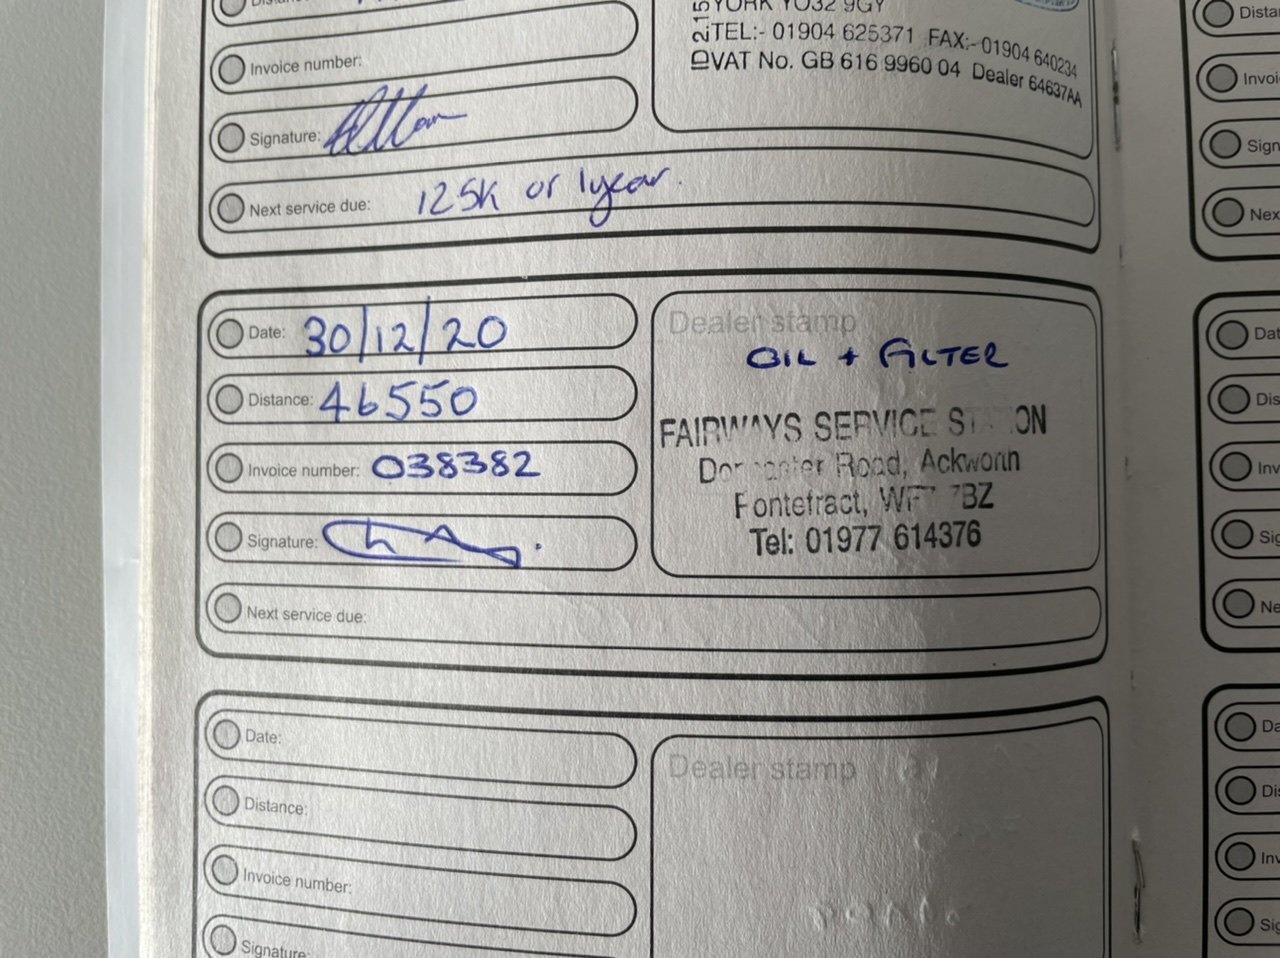 YORK YO32 9GY
TEL:- 01904 625371 FAX:- 01904 640234
VAT No. GB 616 9960 04 Dealer 64637AA
Invoice number:
Signature:
Next service due: 125K or 1year.
Date: 30/12/20
Distance: 46550
Invoice number: 038382
Signature:
Next service due:
Dealer stamp
OIL + FILTER
FAIRWAYS SERVICE STATION
Road, Ackworth
Pontefract, 7BZ
Tel: 01977 614376
Date:
Distance:
Invoice number:
Signature:
Dealer stamp
Dista
Invoi
Sign
Nex
Dat
Dis
Inv
Sig
Ne
Da
Di
Inv
Sig